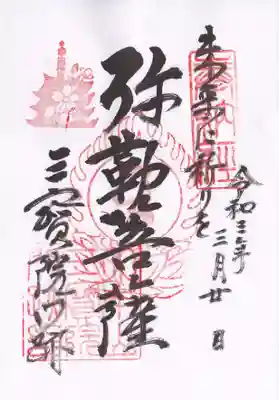 令和三年
三月廿日
未来に祈りを
弥勒菩薩
三寳院門跡